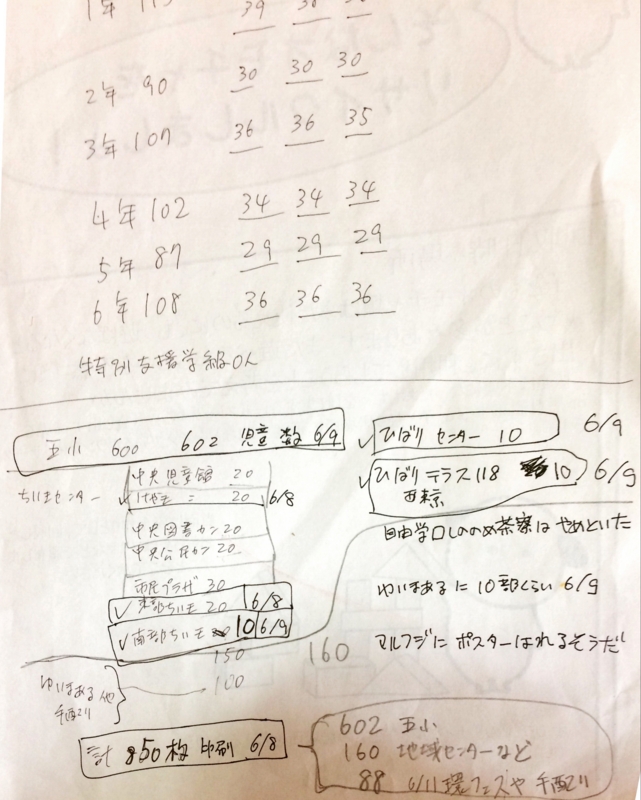 1年 113 39 38 36
2年 90 30 30 30
3年 107 36 36 35
4年 102 34 34 34
5年 87 29 29 29
6年 108 36 36 36
特別支援学級0人
五小 600 602 児童数 6/9
中央児童館 20
ちいきセンター
けやき 〃 20 6/8
中央図書カン 20
中央公民カン 20
市民プラザ 30
東部ちいき 20 6/8
南部ちいき 10 6/9
150 160
ゆいまある他
手配り
100
計 850枚 印刷 6/8
ひばり センター 10 6/9
ひばり テラス 118 10 6/9
西東京
自由学□しののめ茶寮は やめといた
ゆいまあるに 10部くらい 6/9
マルフジに ポスターはれるそうだ
602 五小
160 地域センターなど
88 6/11 環フェスや 手配り